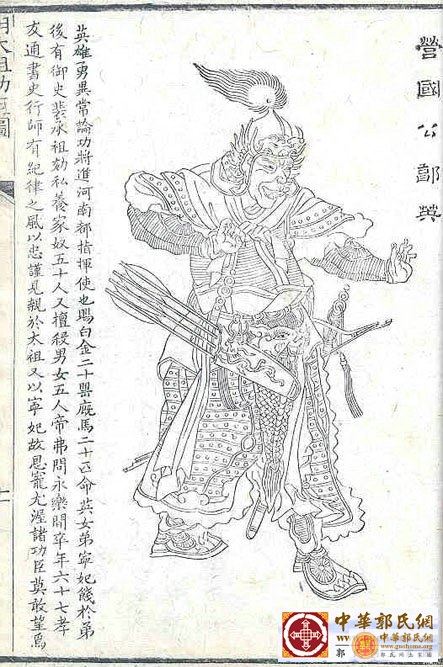 營國公郭英
英雄勇異常論功將進河南都指揮使也賜白金二十罌廐馬二十匹命英女弟寧妃餞於弟
後有御史裴承祖劾私養家奴五十人又擅殺男女五人帝弗問永樂間卒年六十七孝
友通書史行師有紀律之風以忠謹見親於太祖又以寧妃故恩寵尤渥諸功臣莫敢望焉
明太祖功臣圖
中華郭氏網
中華郭氏網
郭